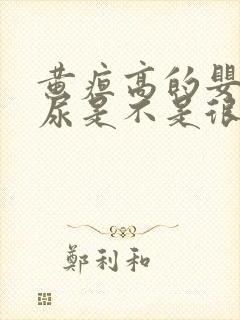 黄疸高的婴
尿是不是很
鄭利和